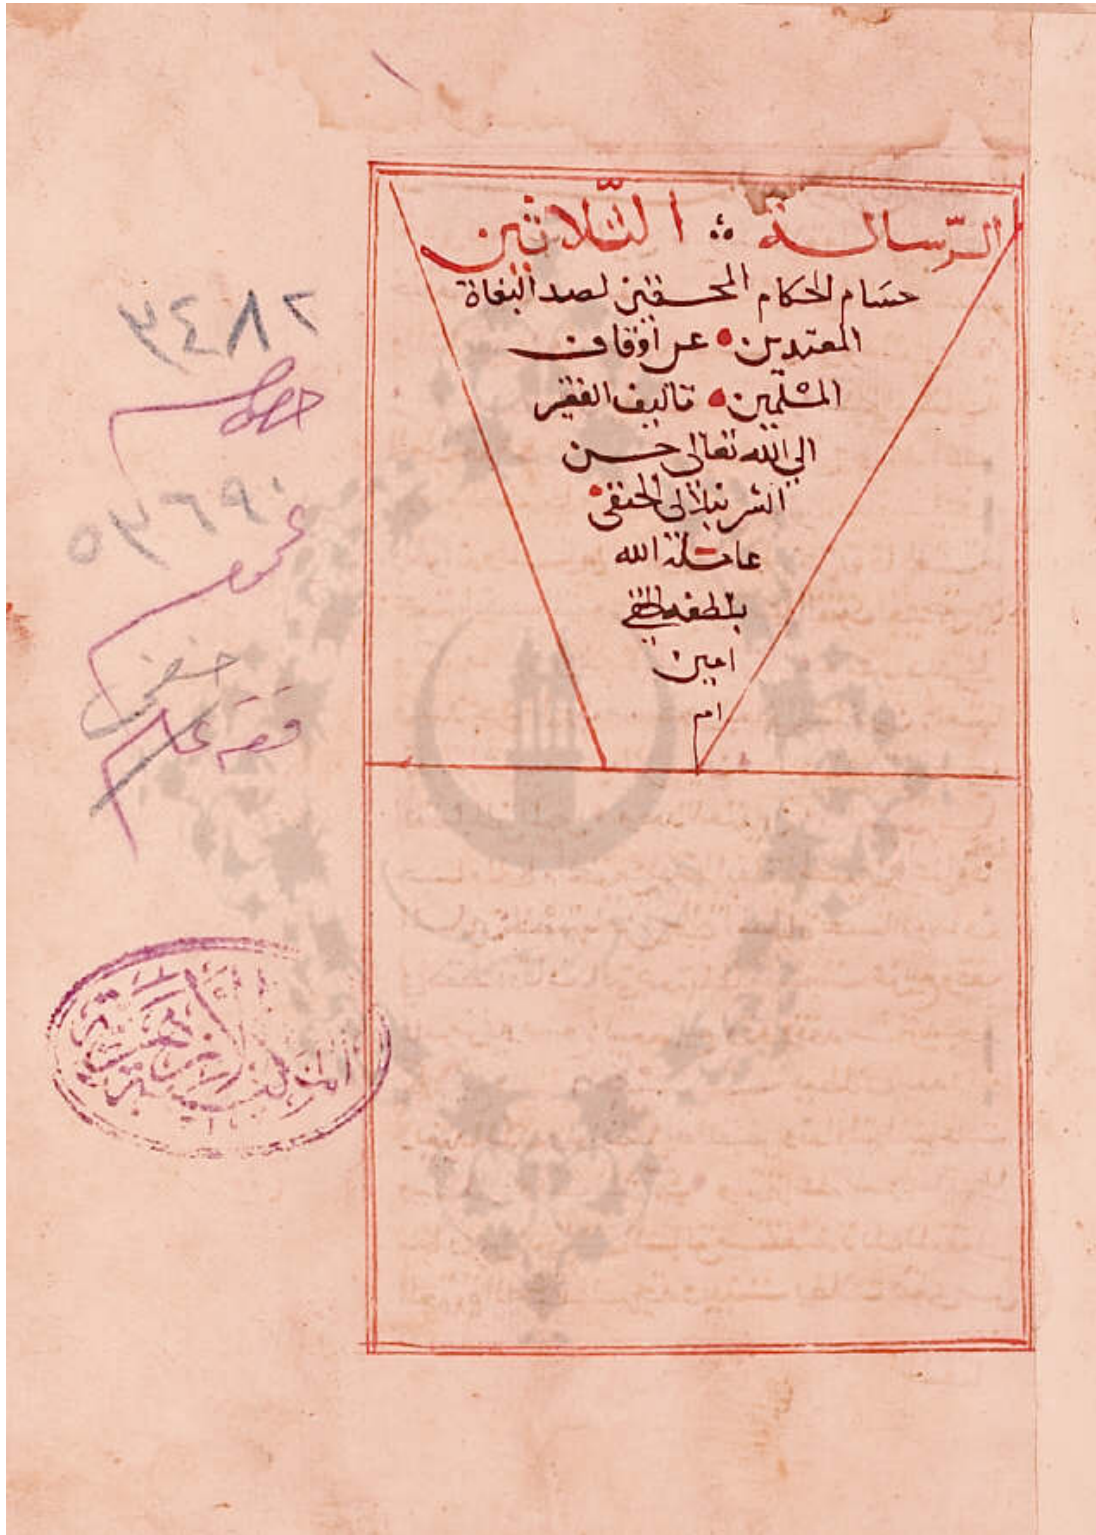 الرسالة الثلاثين
حسام الحكام المحققين لصد البغاة
المعتدين عن أوقاف
المسلمين تاليف الفقير
الي الله تعالى حسن
الشرنبلالى الحنفى
عامله الله
بلطفه الخفي
امين
ام
٢٨٤٣
خصوص
٥٣٦٩٠
عموم
حنفى
فقه عام